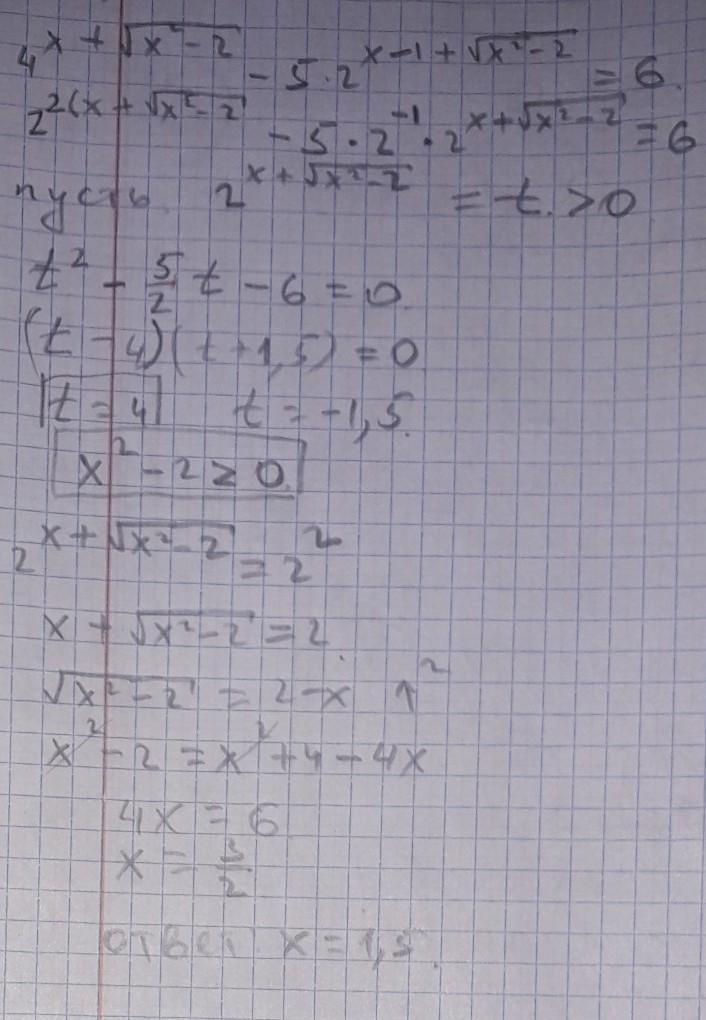 4^{x + √(x² - 2)} - 5 · 2^{x - 1 + √(x² - 2)} = 6.
2^{2(x + √(x² - 2)} - 5 · 2^{-1} · 2^{x + √(x² - 2)} = 6
пусть 2^{x + √(x² - 2)} = t. > 0
t² - 5/2 t - 6 = 0.
(t - 4)(t + 1,5) = 0
t = 4 t = -1,5.
x² - 2 ≥ 0.
2^{x + √(x² - 2)} = 2²
x + √(x² - 2) = 2.
√(x² - 2) = 2 - x ↑²
x² - 2 = x² + 4 - 4x
4x = 6
x = 3/2
ответ. x = 1,5.